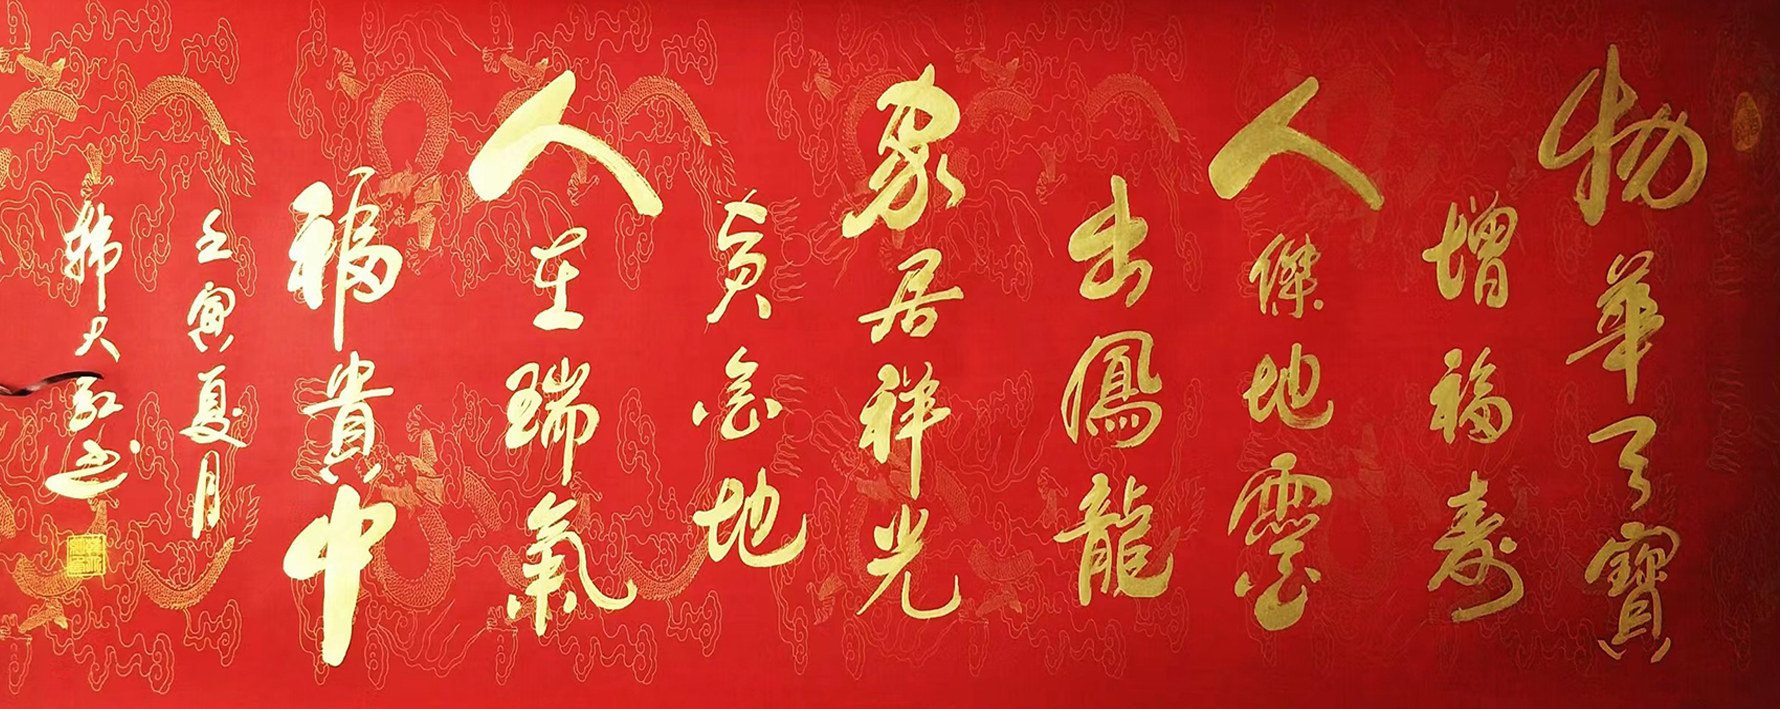 物華天寶
增福壽
人傑地靈
出鳳龍
家居祥光
黄金地
人在瑞氣
福貴中
壬寅夏月
韩大书